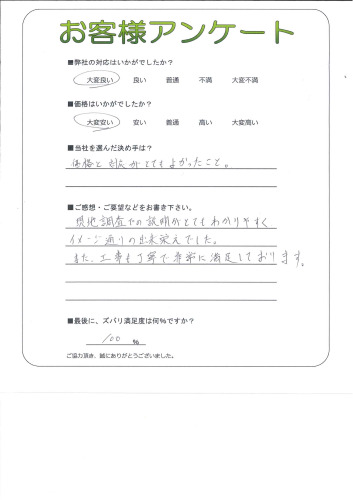 お客様アンケート
■弊社の対応はいかがでしたか？
大変良い 良い 普通 不満 大変不満
■価格はいかがでしたか？
大変安い 安い 普通 高い 大変高い
■当社を選んだ決め手は？
価格と対応がとてもよかったこと。
■ご感想・ご要望などをお書き下さい。
現地調査での説明がとてもわかりやすく
イメージ通りの出来栄えでした。
また、工事も丁寧で非常に満足しております。
■最後に、ズバリ満足度は何%ですか？
100 %
ご協力頂き、誠にありがとうございました。